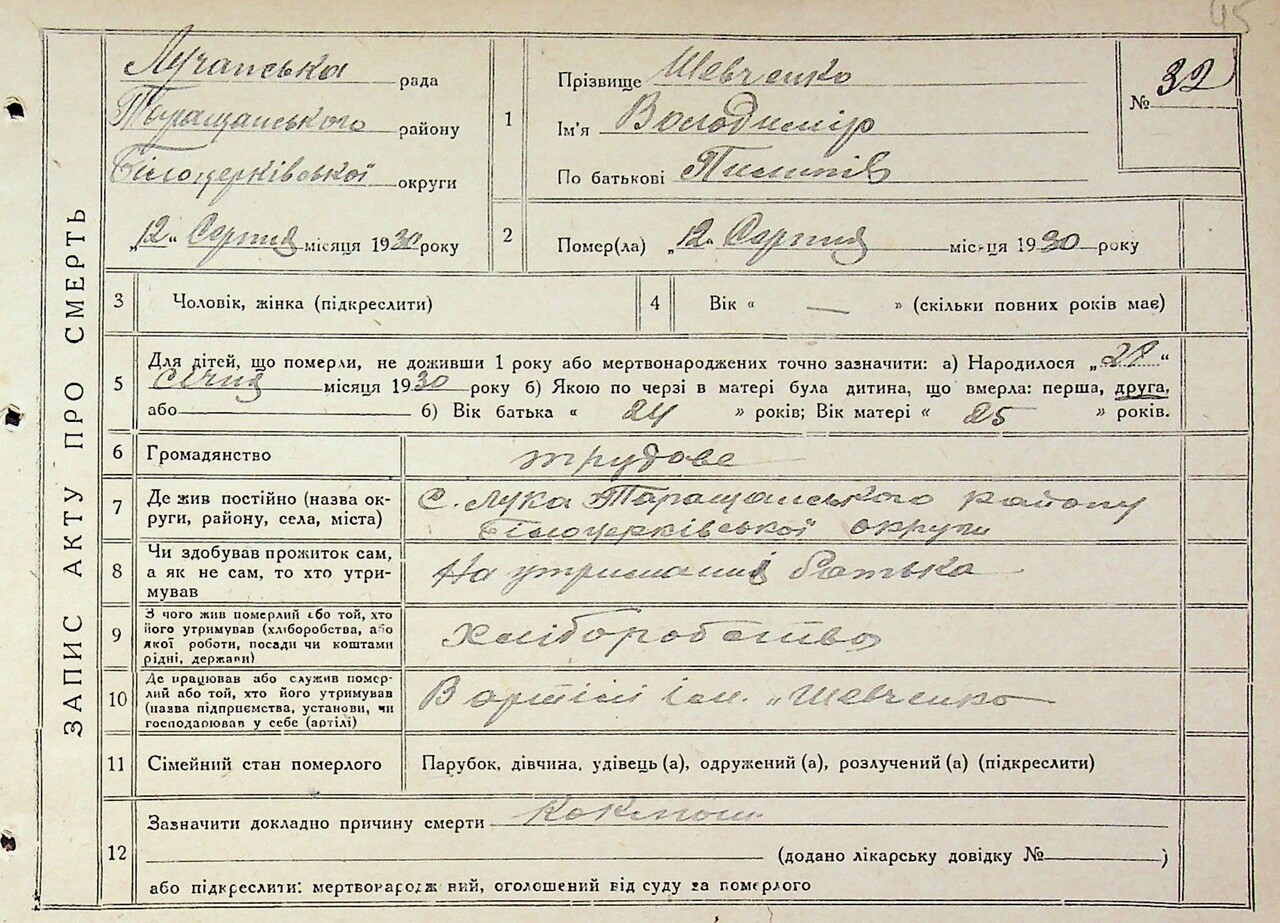 45
ЗАПИС АКТУ ПРО СМЕРТЬ
Лучанська рада
Таращанського району
Білоцерківської округи
„12“ Серпня місяця 1930 року
1
Прізвище Шевченко
Ім'я Володимір
По батькові Пилипів
№ 32
2
Помер(ла) „12“ Серпня місяця 1930 року
3
Чоловік, жінка (підкреслити)
4
Вік « — » (скільки повних років має)
5
Для дітей, що померли, не доживши 1 року або мертвонароджених точно зазначити: а) Народилося „28“
Січня місяця 1930 року б) Якою по черзі в матері була дитина, що вмерла: перша, друга,
або б) Вік батька « 24 » років; Вік матері « 25 » років.
6
Громадянство
трудове
7
Де жив постійно (назва ок-
руги, району, села, міста)
С. Лука Таращанського району
Білоцерківської округи
8
Чи здобував прожиток сам,
а як не сам, то хто утри-
мував
На утриманні батька
9
З чого жив померлий або той, хто
його утримував (хліборобства, або
якої роботи, посади чи коштами
рідні, держави)
Хліборобство
10
Де працював або служив помер-
лий або той, хто його утримував
(назва підприємства, установи, чи
господарював у себе (артілі)
В артілі ім. „Шевченко
11
Сімейний стан померлого
Парубок, дівчина, удівець (а), одружений (а), розлучений (а) (підкреслити)
12
Зазначити докладно причину смерти
(додано лікарську довідку № )
або підкреслити: мертвонародж ний, оголошений від суду за померлого